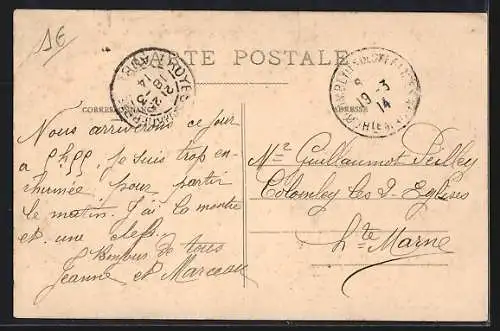 1€
CARTE POSTALE
TROYES
AUBE
CORRESPONDANCE
ADRESSE
19-3
14
Nous arriverons ce jour
a 5h55. Je suis trop en-
rhumée pour partir
le matin. J'ai la montre
et une clef.
Bonjour de tous
Jeanne et Marceau
Mr Guillaumot Peilley
Colombey les 2 Eglises
Hte Marne